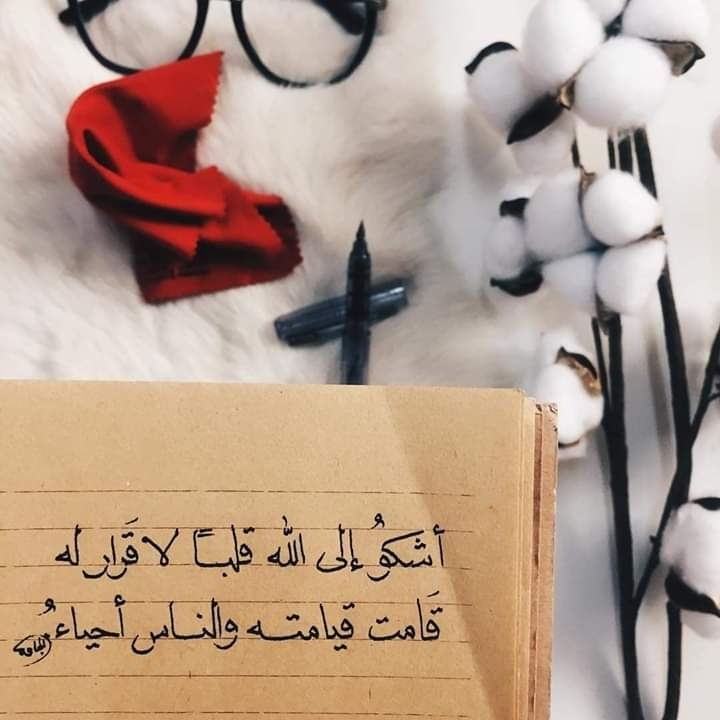 أشكوُ إلى الله قلبـــاً لا قَرار له
قَامت قيامتـــه والنـاس أحياءُ